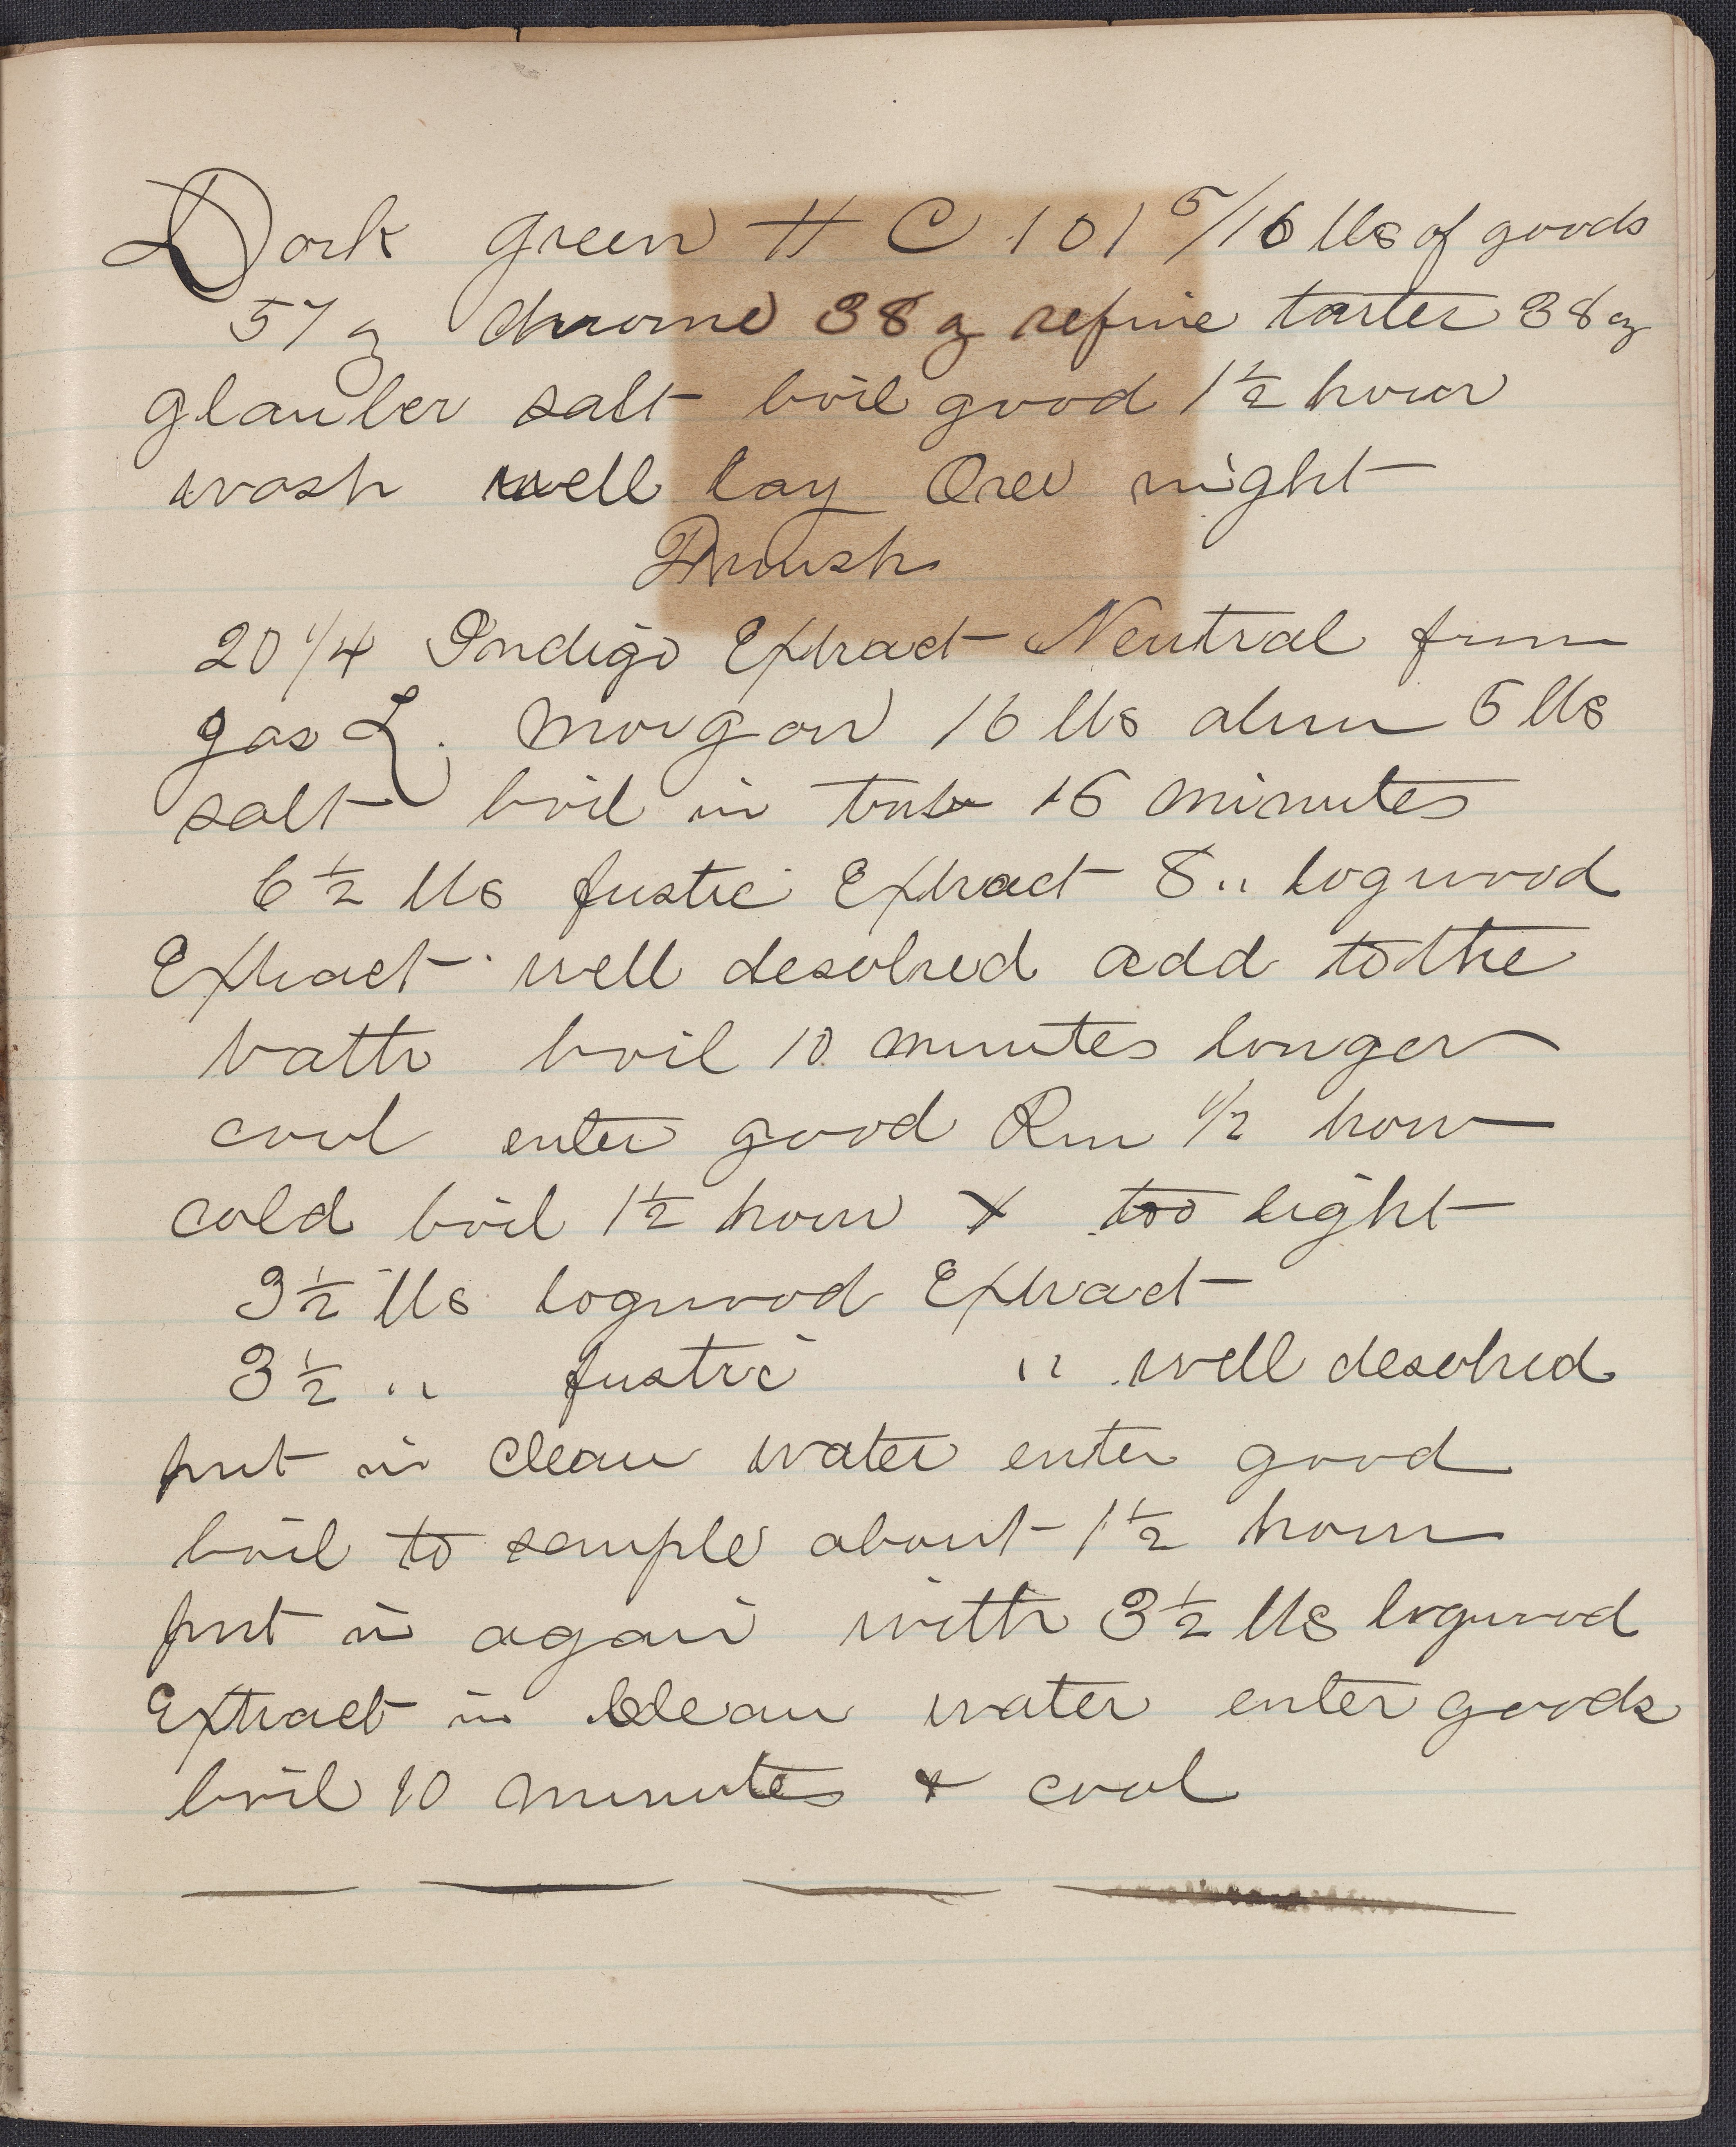 Dark green # C 101 5/16 lbs of goods
57 oz chrome 38 oz refine tarter 38 oz
glauber salt boil good 1 1/2 hour
wash well lay Over night
Finish
20 1/4 Indigo Extract Neutral from
gas L. Morgan 16 lbs alum 5 lbs
salt boil in tub 15 minutes
6 1/2 lbs fustic Extract 8 " logwood
Extract well desolved add to the
bath boil 10 minutes longer
cool enter good Run 1/2 hour
cold boil 1 1/2 hour x too light
3 1/2 lbs logwood Extract
3 1/2 " fustic " well desolved
put in clean water enter good
boil to sample about 1 1/2 hour
put in again with 3 1/2 lbs logwood
Extract in clean water enter goods
boil 10 minutes & cool